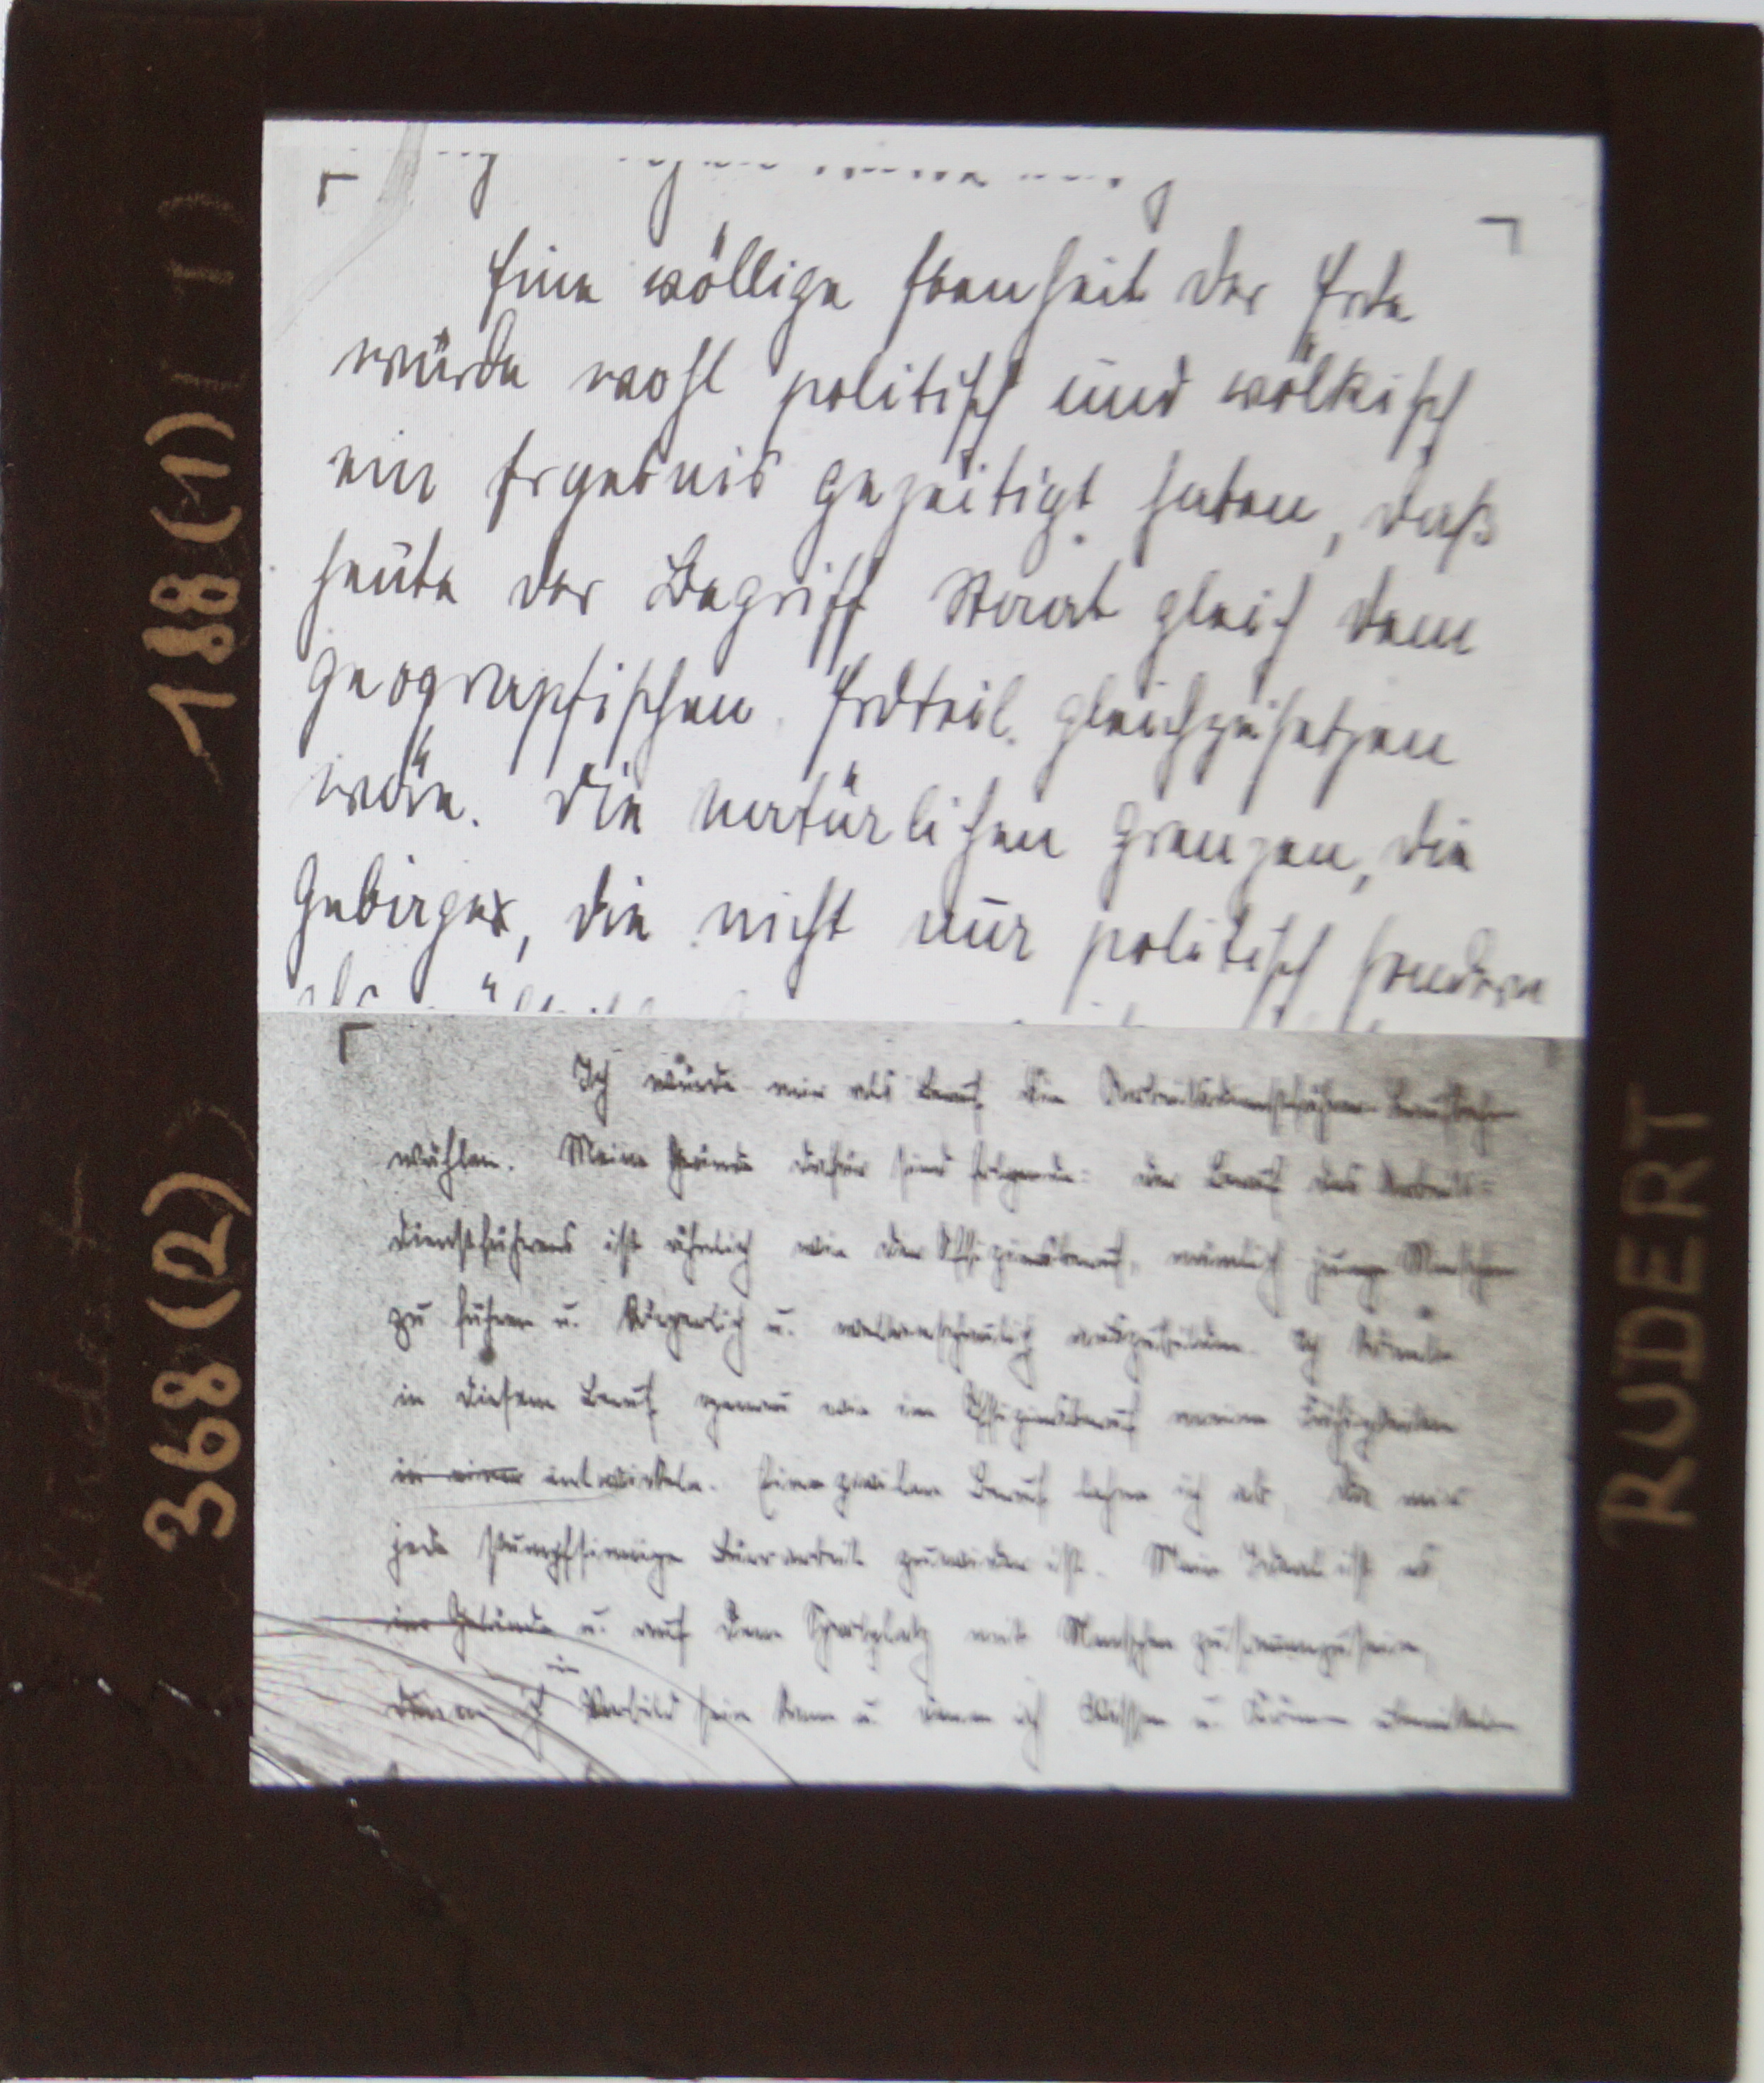 Eine völlige Ebenheit der Erde
würde wohl politisch und völkisch
ein Ergebnis gezeitigt haben, daß
heute der Begriff Staat gleich dem
geographischen Erdteil gleichzusetzen
wäre. Die natürlichen Grenzen, die
Gebirges, die nicht nur politisch sondern
Ich würde mir als Beruf die Arbeitsdienstführer-
wählen. Meine Gründe dafür sind folgende: der Beruf des Arbeits=
dienstführers ist ähnlich wie der Offiziersberuf, nämlich junge Menschen
zu führen u. körperlich u. weltanschaulich auszubilden. Ich könnte
in diesem Beruf genau wie im Offiziersberuf meine Fähigkeiten
in einer entwickeln. Einen zivilen Beruf lehne ich ab, da mir
jede stumpfsinnige Büroarbeit zuwider ist. Mein Ideal ist es
im Gelände u. auf dem Sportplatz mit Menschen zusammenzusein,
denen ich ein Vorbild sein kann u. denen ich Wissen u. Können
188 (1)
368 (2)
RUDERT